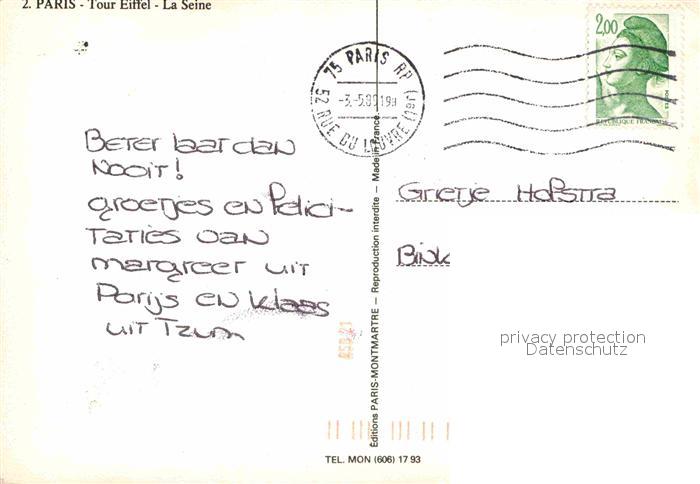 2. PARIS - Tour Eiffel - La Seine
75 PARIS RP (1er)
52 RUE DU LOUVRE
2,00
POSTES
REPUBLIQUE FRANCAISE
Beter laat dan
nooit!
groetjes en felici-
taties van
margreet uit
Parijs en klaas
uit Tzum
Grietje Hofstra
privacy protection
Datenschutz
Editions PARIS-MONTMARTRE — Reproduction interdite — Made in France
TEL. MON (606) 17 93